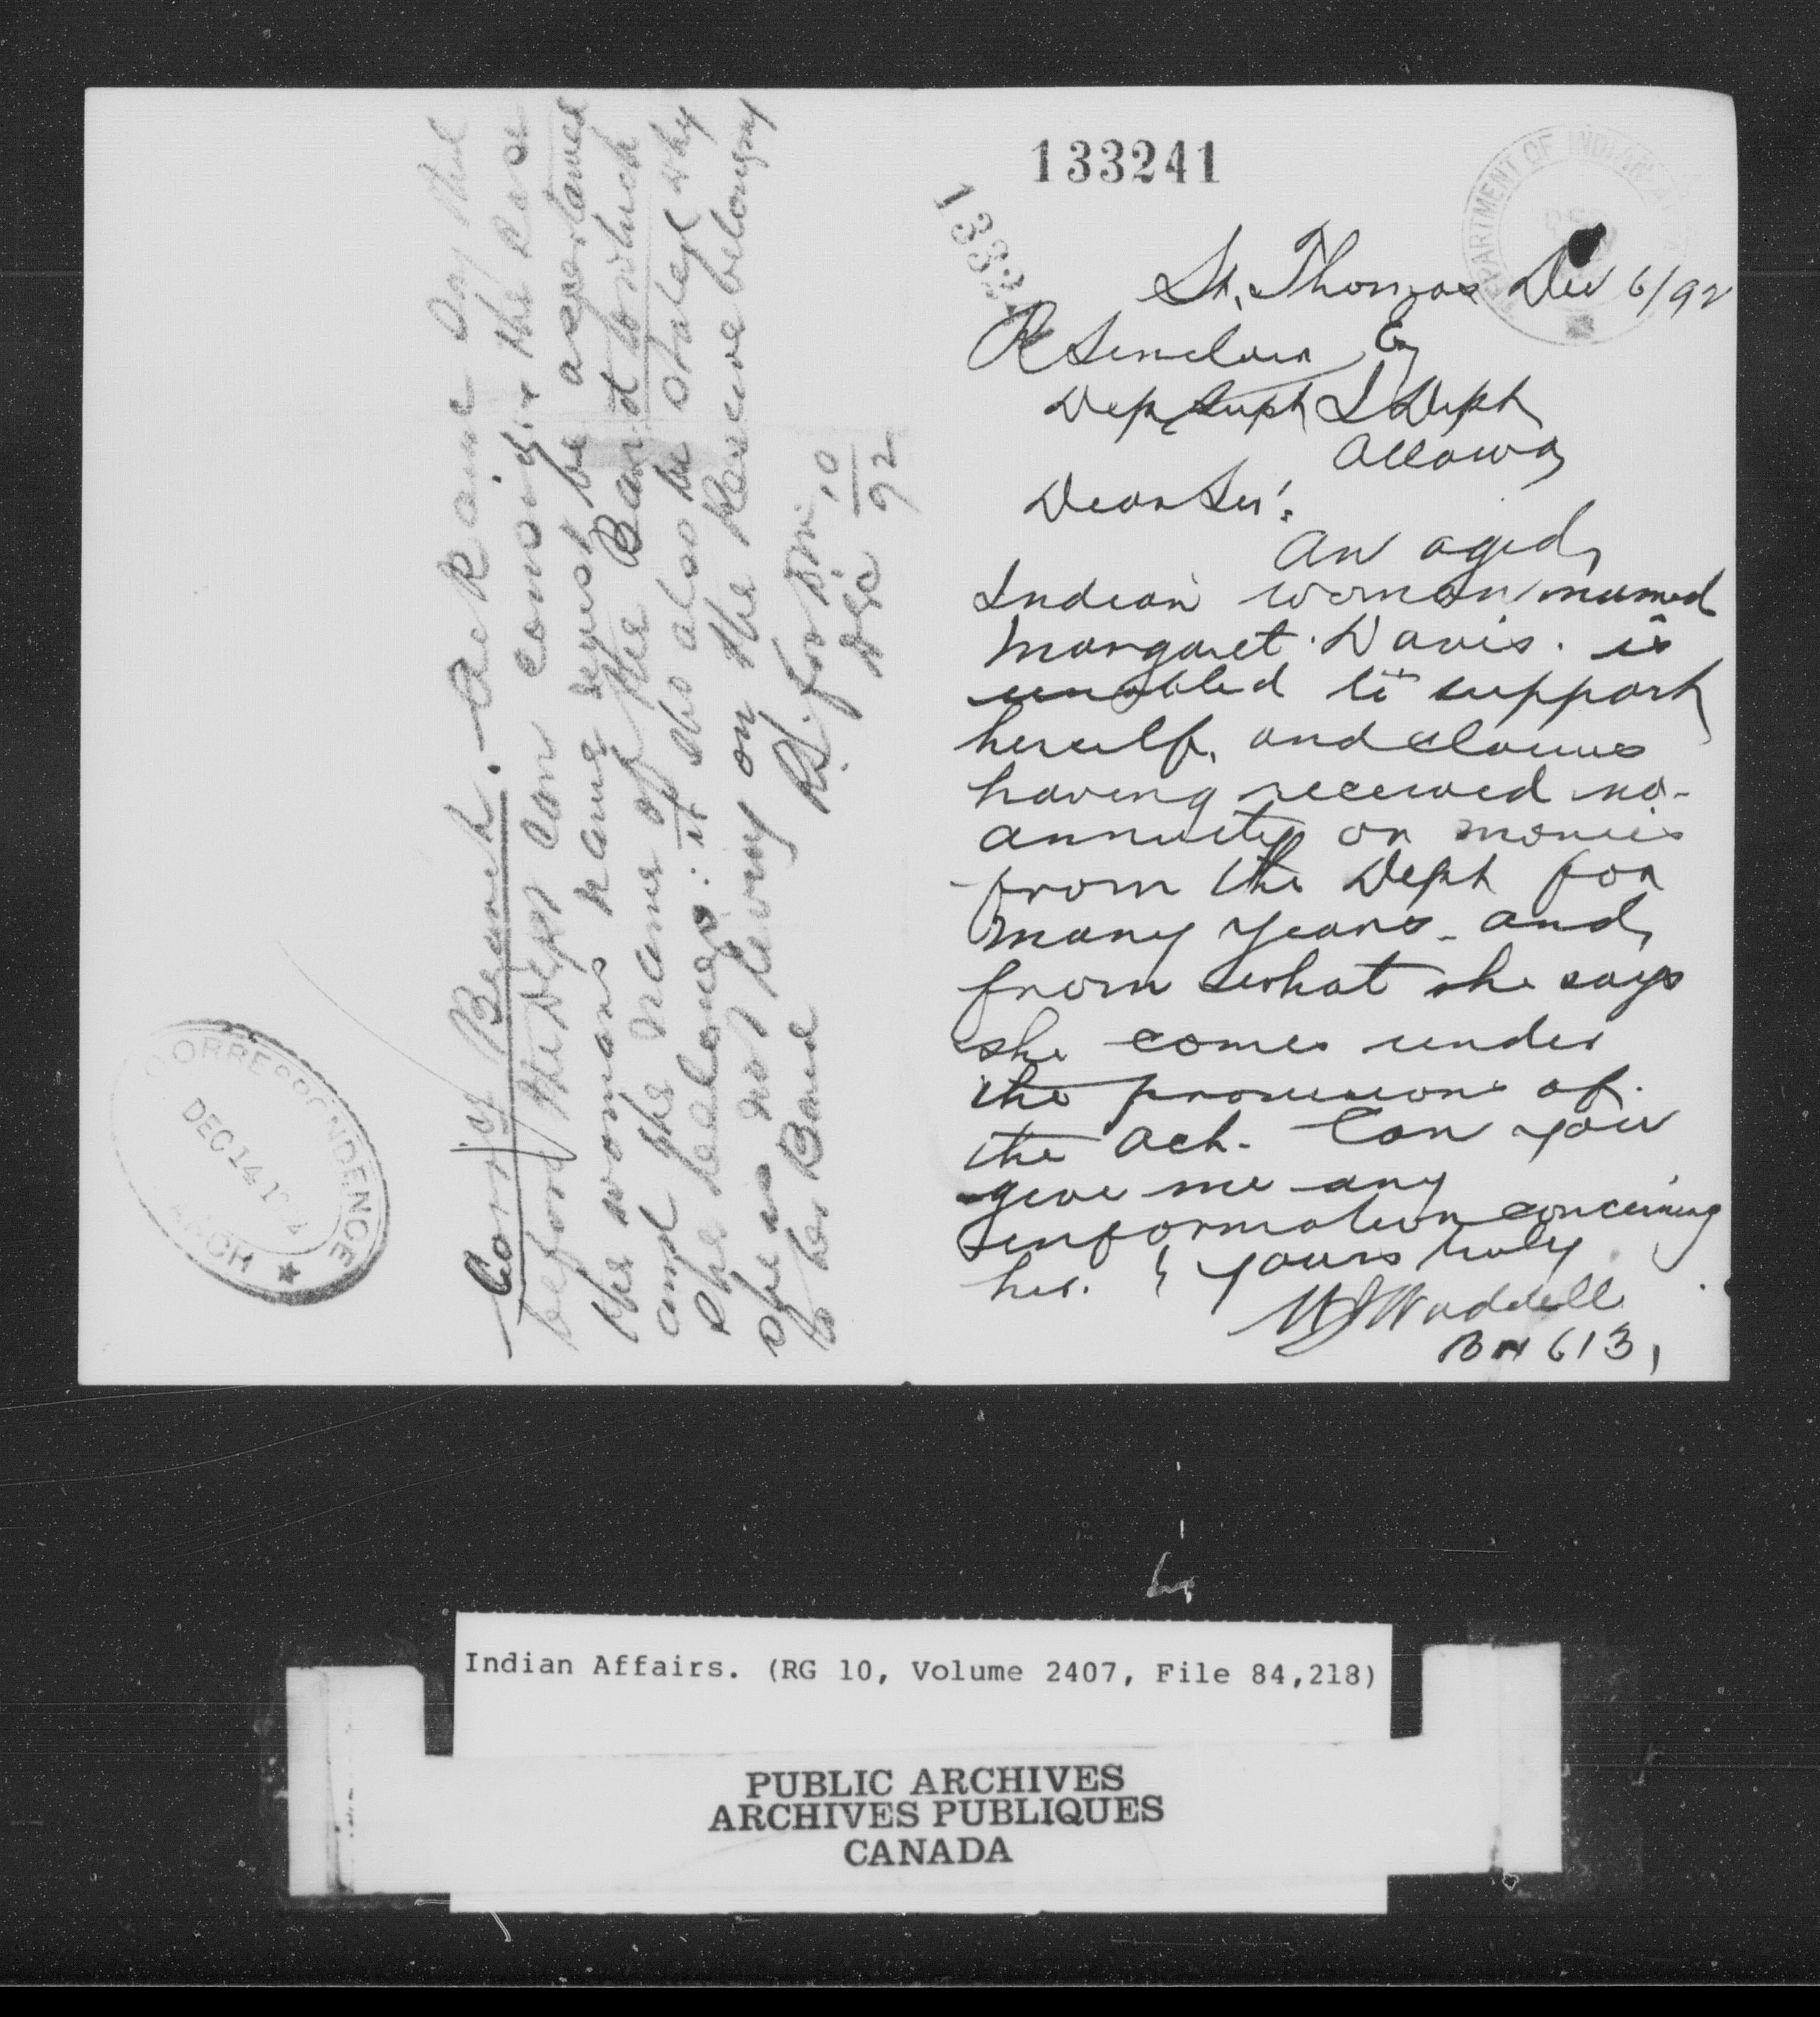 133241
13324
DEPARTMENT OF INDIAN
St. Thomas Dec 6/92
R Sinclair Esq
Dep Supt I Dept
Ottawa
Dear Sir:
An aged
Indian woman named
Margaret Davis. is
unabled to support
herself, and claims
having received no
annuity or monies
from the Dept for
many years. and
from what she says
she comes under
the provisions of
the Act. Can you
give me any
information concerning
her. yours truly
Waddell
Bx 613
Corr'g Branch. Ack and say that
before the Dept can consider the case
the womans name must be ascertained
and the name of the Band to which
she belongs: it sho also be stated why
she is not living on the Reserve belonging
to her Band
R.S. for Min
Dec 10/92
CORRESPONDENCE
DEC 14
Indian Affairs. (RG 10, Volume 2407, File 84,218)
PUBLIC ARCHIVES
ARCHIVES PUBLIQUES
CANADA